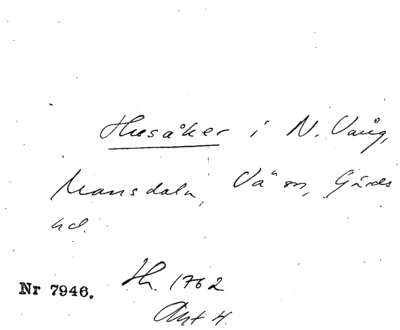 Husåker i N. Vång,
Mansdala, Vä sn, Gärds
hd.
Nr 7946. Sk. 1762
Akt 4.